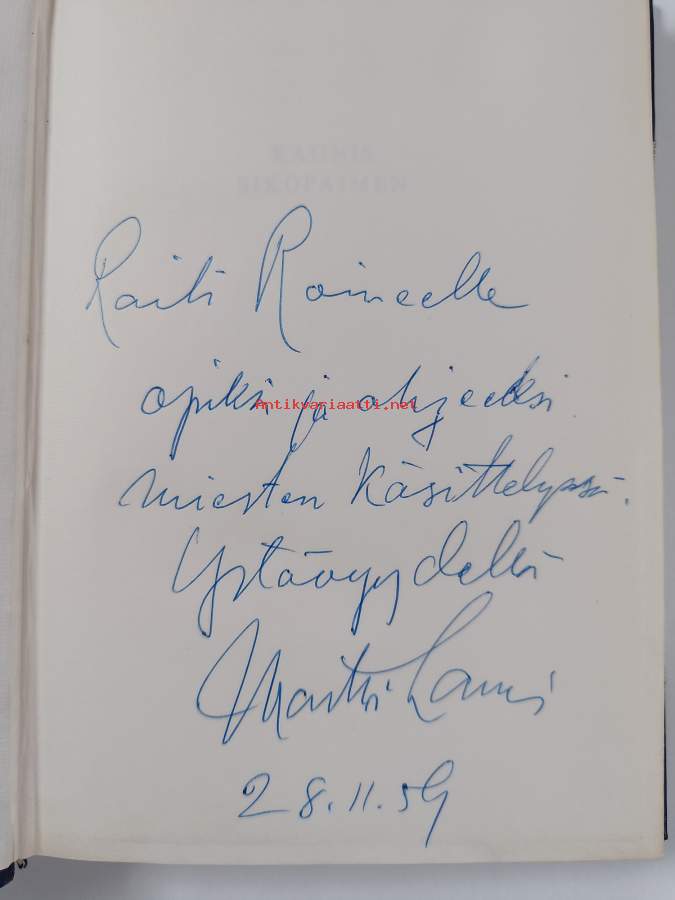 KAUNIS
SIKOPAIMEN
Raili Roineelle
opiksi ja ohjeeksi
Antikvariaatti.net
miesten käsittelyssä.
Ystävyydellä
Martti Larni
28.11.59